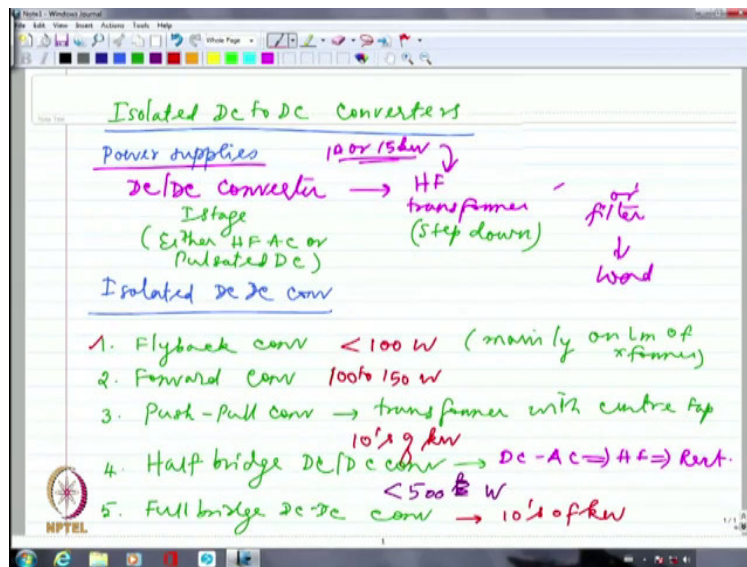 Note1 - Windows Journal
File Edit View Insert Actions Tools Help
Whole Page
B I
Note Title
Isolated DC to DC Converters
Power supplies 10 or 15 kW
DC/DC Converter → HF
transformer
(step down)
I stage
(Either HF AC or
Pulsated DC)
or
filter
↓
Load
Isolated DC DC conv
1. Flyback conv < 100 W (mainly on Lm of xformer)
2. Forward conv 100 to 150 W
3. Push-Pull conv → transformer with centre tap
10's of kW
4. Half bridge DC/DC conv → DC-AC ⇒ HF ⇒ Rect.
< 500 W
5. Full bridge DC-DC conv → 10's of kW
NPTEL
1/1
1